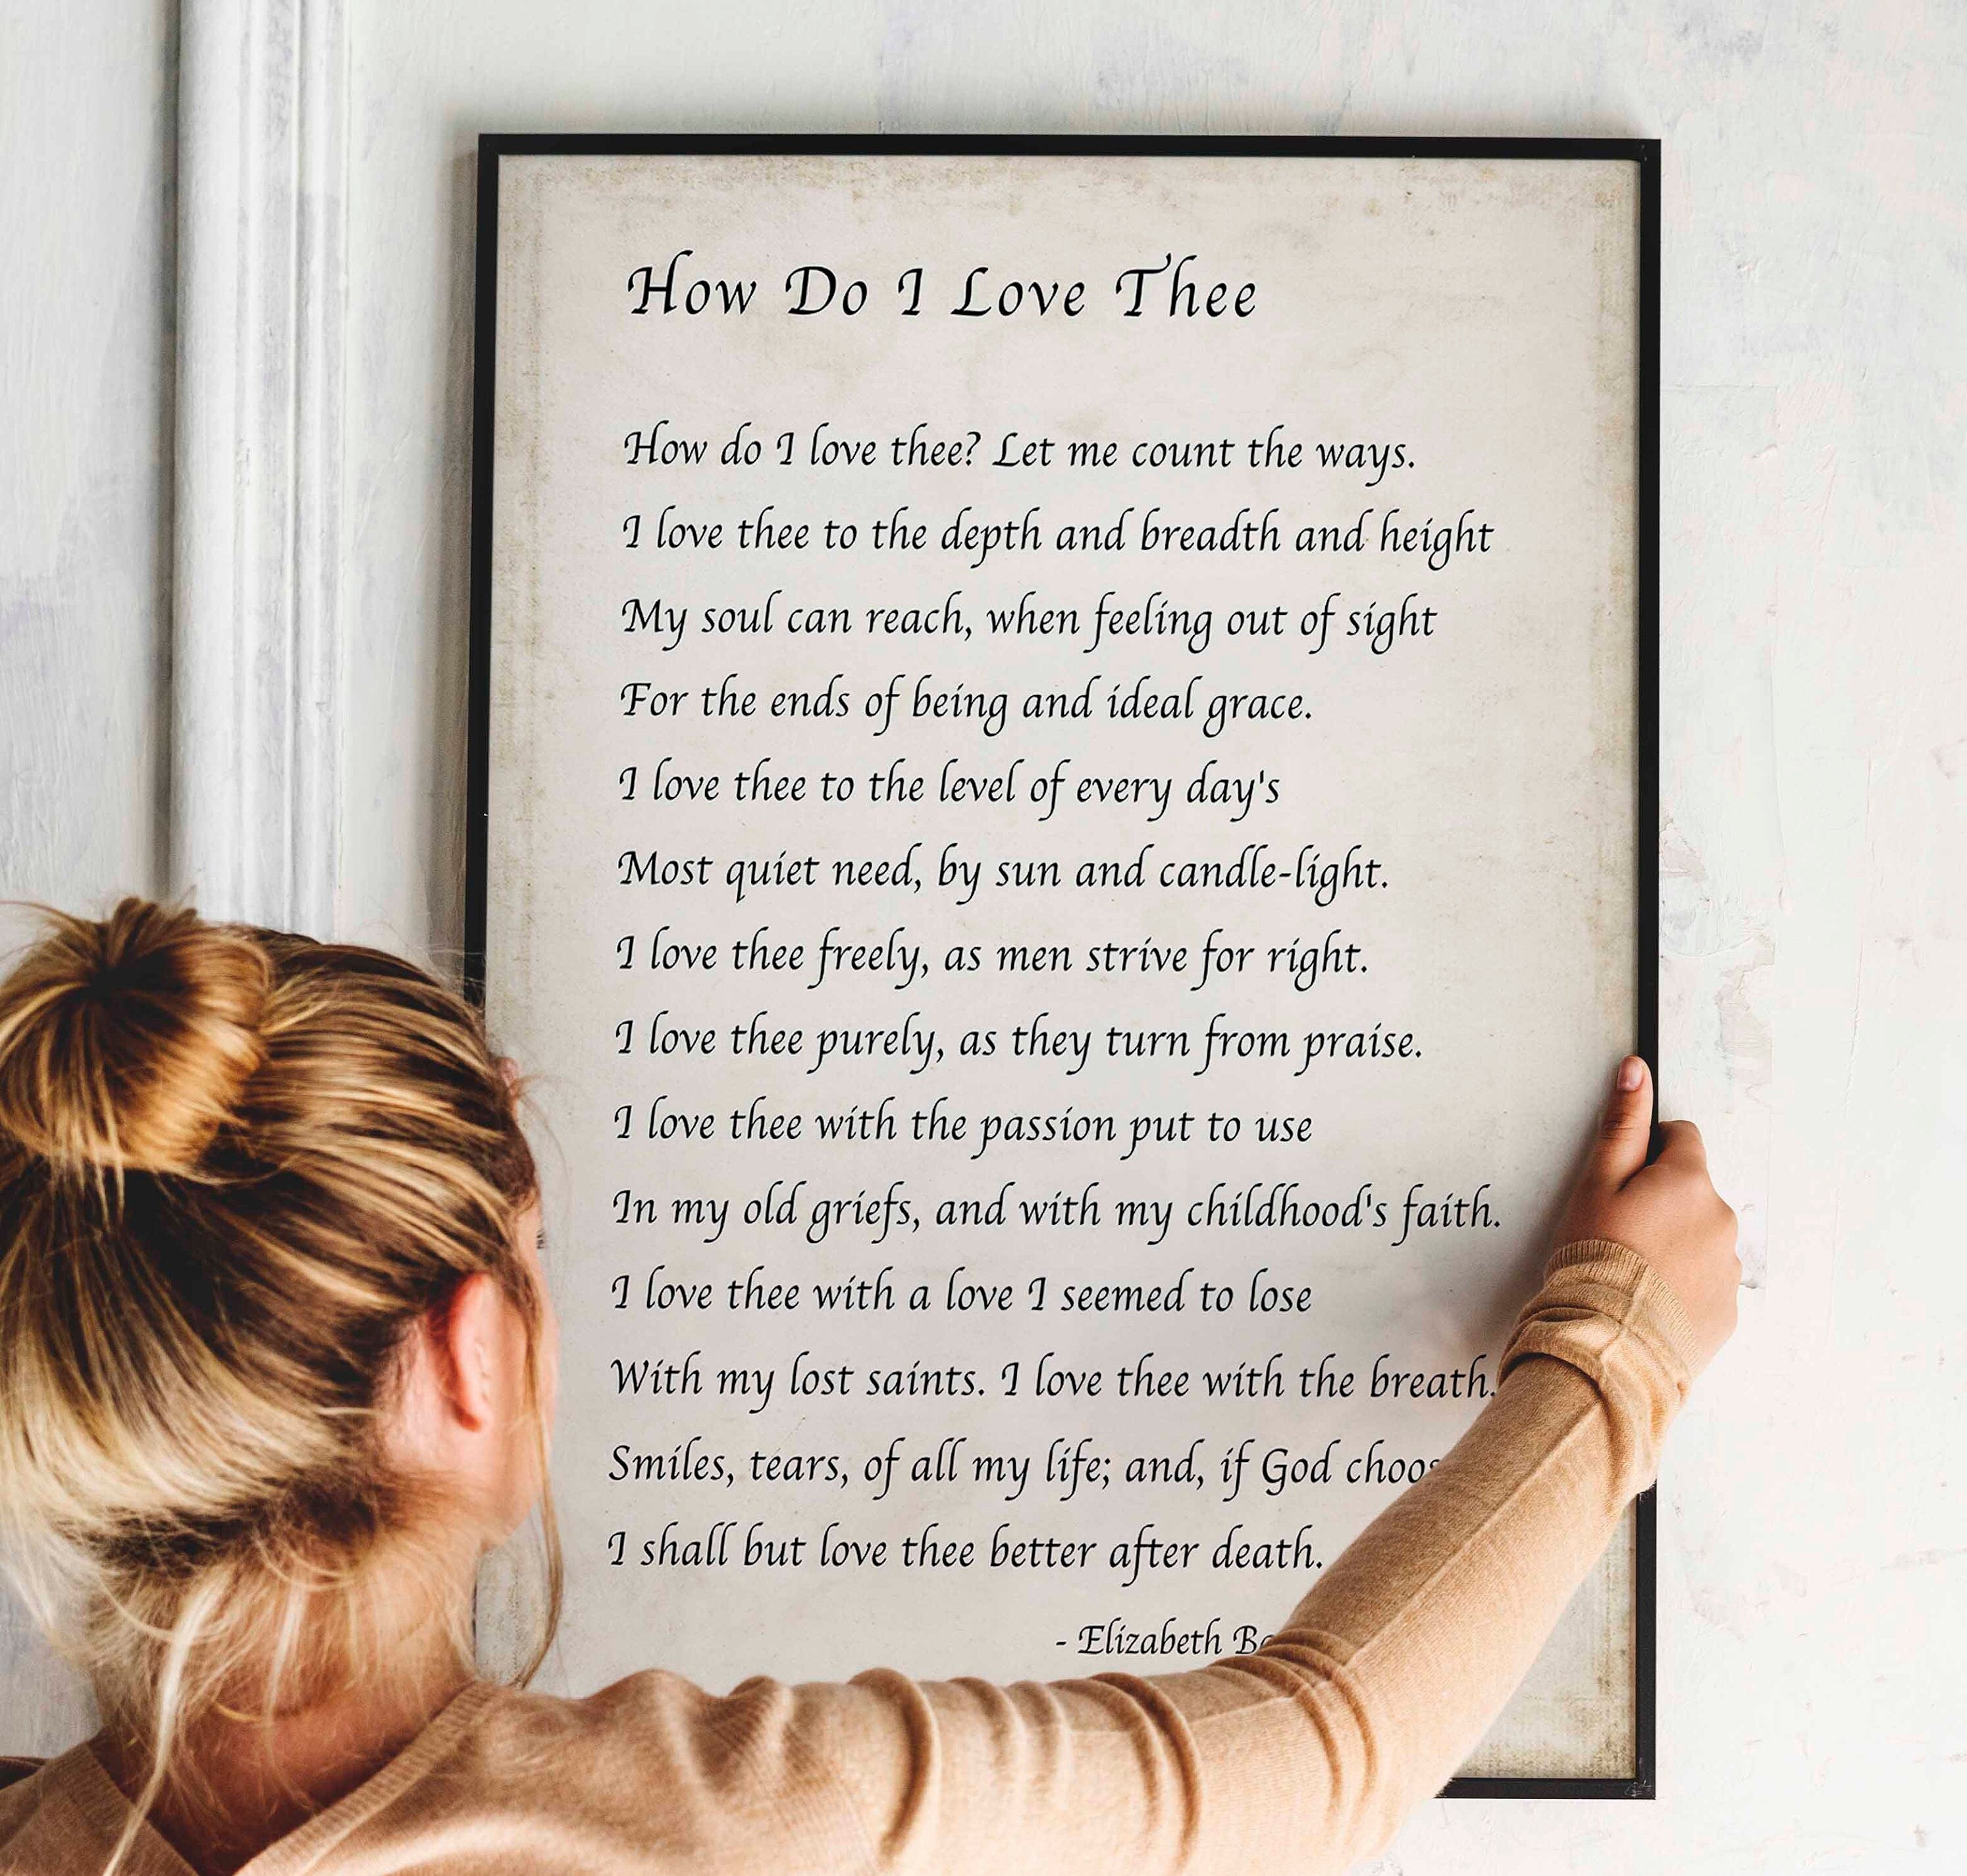 How Do I Love Thee
How do I love thee? Let me count the ways.
I love thee to the depth and breadth and height
My soul can reach, when feeling out of sight
For the ends of being and ideal grace.
I love thee to the level of every day's
Most quiet need, by sun and candle-light.
I love thee freely, as men strive for right.
I love thee purely, as they turn from praise.
I love thee with the passion put to use
In my old griefs, and with my childhood's faith.
I love thee with a love I seemed to lose
With my lost saints. I love thee with the breath.
Smiles, tears, of all my life; and, if God
I shall but love thee better after death.
- Elizabeth